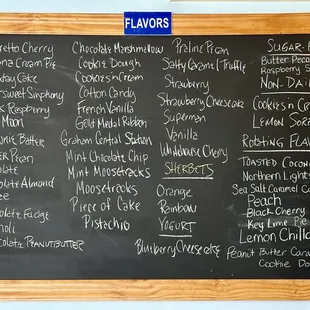 FLAVORS
Cherry
Cream Pie
Cake
Sweet Symphony
Raspberry
Moon
Batter
Pecan
Chocolate Almond
Chocolate Fudge
Chocolate Peanut Butter
Chocolate Marshmallow
Cookie Dough
Cookies n Cream
Cotton Candy
French Vanilla
Gold Medal Ribbon
Graham Central Station
Mint Chocolate Chip
Mint Moosetracks
Moosetracks
Piece of Cake
Pistachio
Praline Pecan
Salty Caramel Truffle
Strawberry
Strawberry Cheesecake
Superman
Vanilla
Whitehouse Cherry
SHERBETS
Orange
Rainbow
YOGURT
Blueberry Cheesecake
SUGAR-
Butter Peca
Raspberry
NON-DAI
Cookies n C
Lemon Sor
ROTATING FLA
TOASTED COCON
Northern Lights
Sea Salt Caramel
Peach
Black Cherry
Key Lime Pie
Lemon Chill
Peanut Butter Cara
Cookie Do